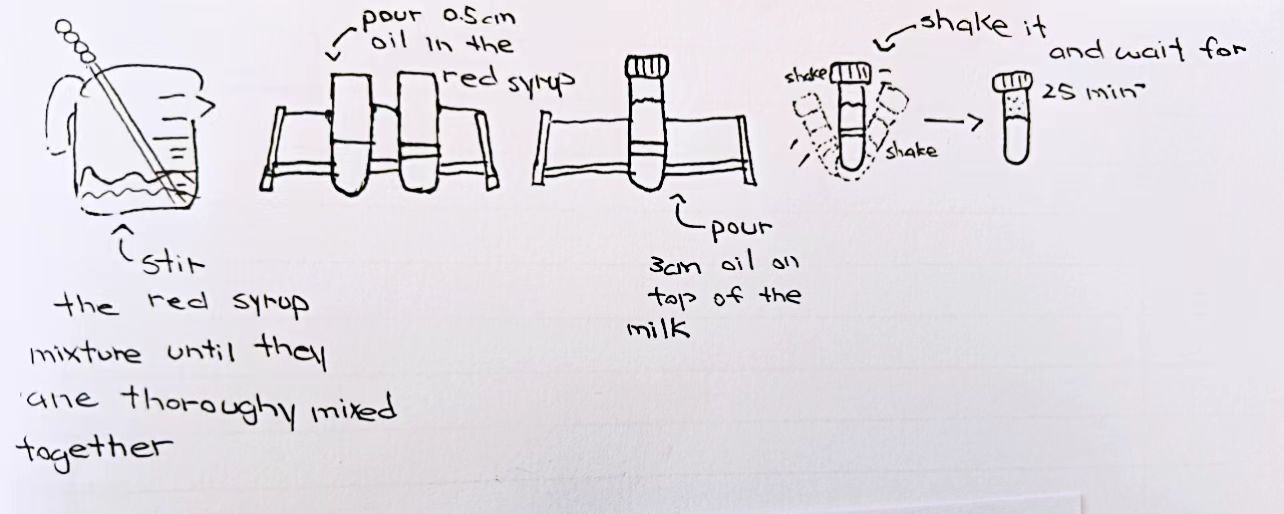 pour 0.5cm
oil in the
red syrup
shake it
and wait for
25 min
shake
shake
stir
the red syrup
mixture until they
are thoroughy mixed
together
pour
3cm oil on
top of the
milk